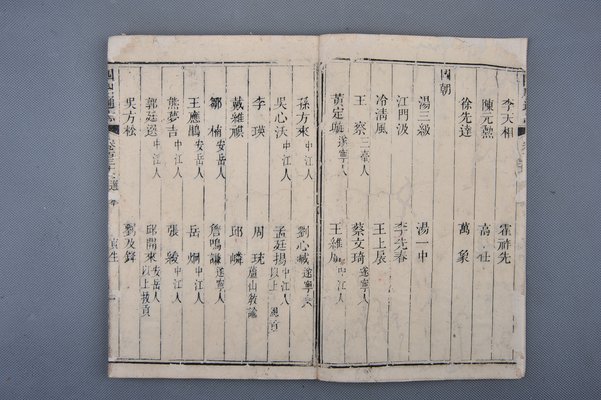 李天相 霍祚先
陳元勲 高社
徐先達 萬象
國朝
湯三級 湯一中
江門汲 李先春
冷清風 王上辰
王察三臺人 蔡文琦遂寧人
黃定 遂寧人 王維
孫方來中江人 劉心 遂寧人
吳心沃中江人 孟廷揚中江人以上
李瑛 周珖蘆山敎諭
戴雅祺 邱嶙
鄒楠安岳人 詹鳴謙遂寧人
王應鵬安岳人 岳炯中江人
熊夢吉中江人 張綾中江人
郭廷巡中江人 邱開來安岳人以上拔貢
吳方松 劉及鋒